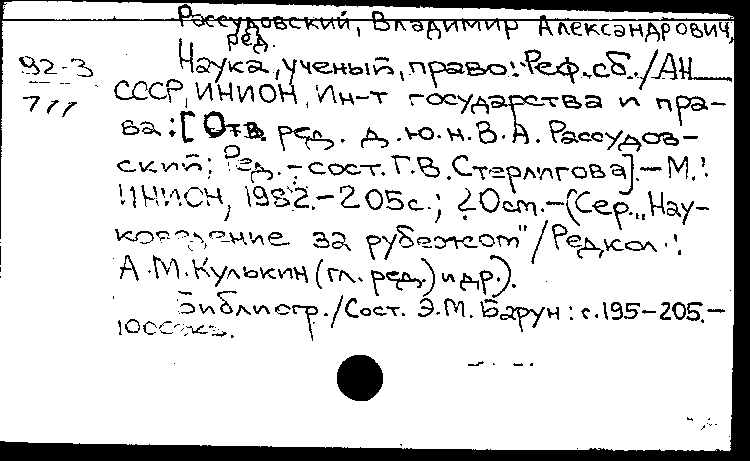 Рассудовский, Владимир Александрович,
ред.
92-3
Наука, ученый, право: Реф. сб./АН
777
СССР, ИНИОН, Ин-т государства и пра-
ва: [Отв. ред. д.ю.н. В.А. Рассудов-
ский; Ред.-сост. Г.В. Стерлигова].-М.:
ИНИОН, 1982.-205с.; 20см.-(Сер. „Нау-
коведение за рубежом"/Редкол.:
А.М. Кулькин (гл. ред.) и др.).
Библиогр./Сост. Э.М. Барун: с.195-205.-
1000экз.